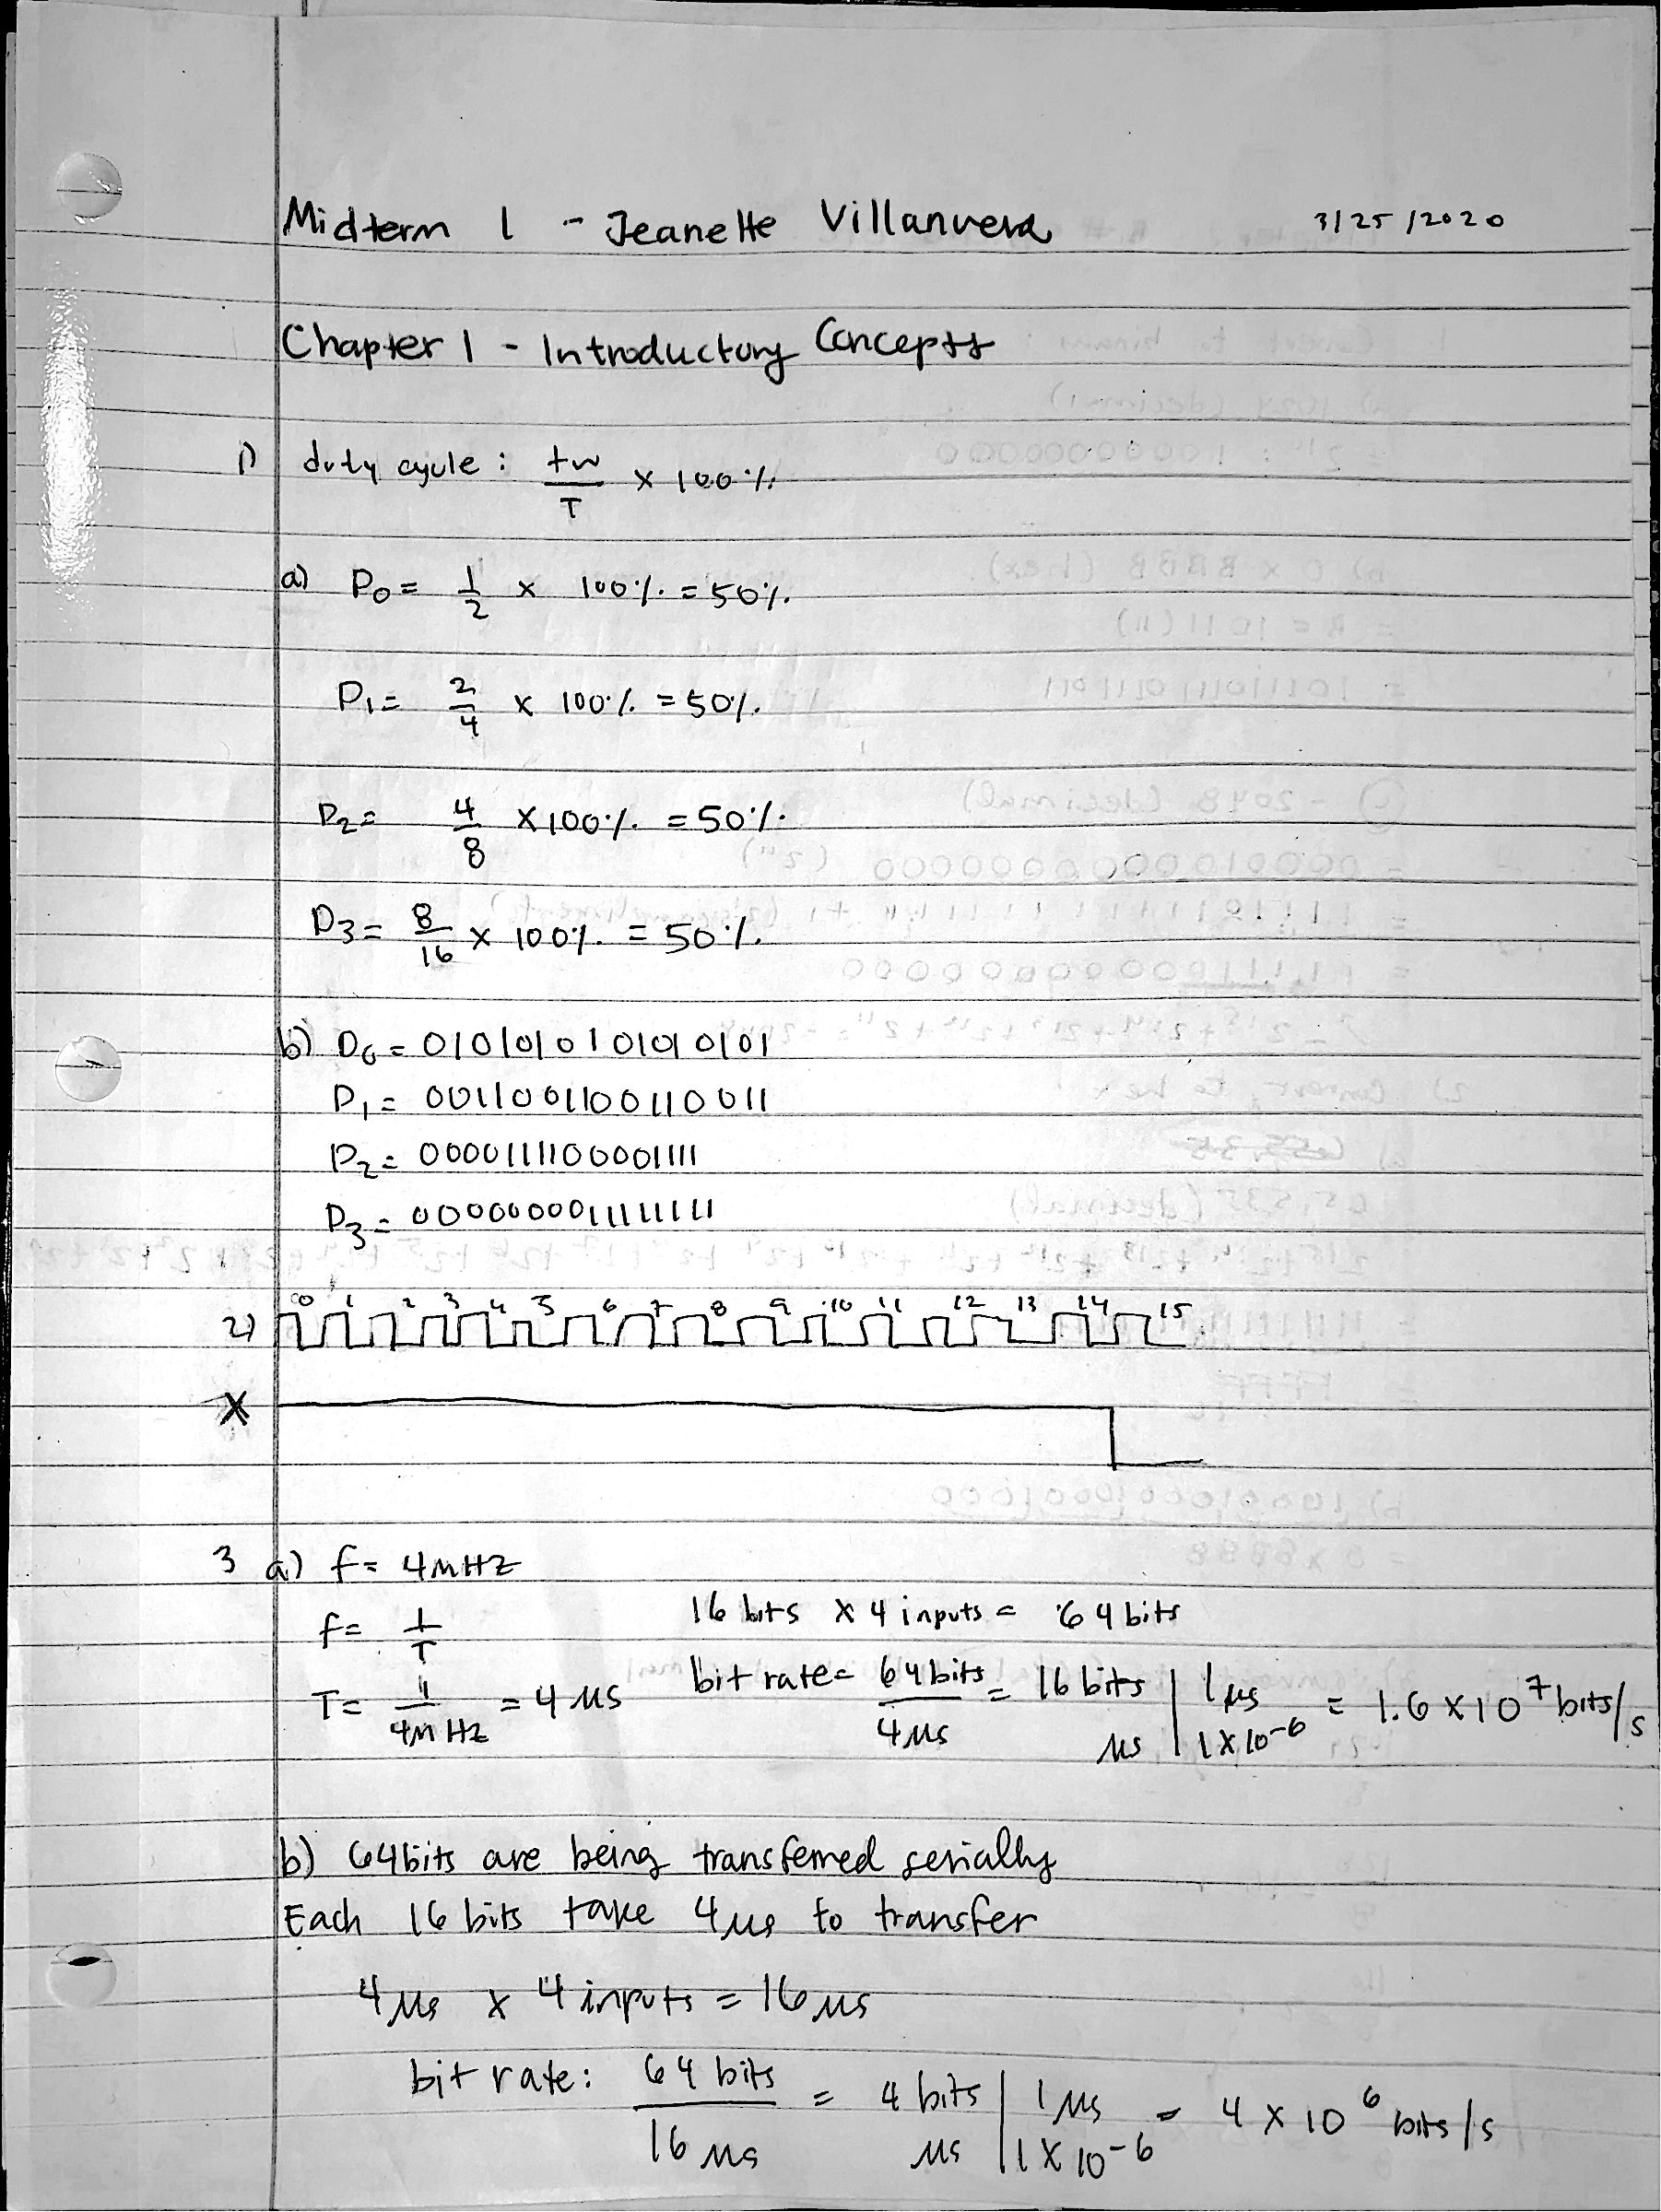 Midterm 1 - Jeanette Villanueva 3/25/2020
Chapter 1 - Introductory Concepts
1) duty cycle: tw/T x 100%
a) D0 = 1/2 x 100% = 50%
D1 = 2/4 x 100% = 50%
D2 = 4/8 x 100% = 50%
D3 = 8/16 x 100% = 50%
b) D0 = 0101010101010101
D1 = 0011001100110011
D2 = 0000111100001111
D3 = 0000000011111111
2) 0 1 2 3 4 5 6 7 8 9 10 11 12 13 14 15
X
3 a) f = 4MHz
f = 1/T 16 bits x 4 inputs = 64 bits
T = 1/4MHz = 4 μs bit rate = 64 bits/4μs = 16 bits/μs | 1μs/1x10^-6 = 1.6 x 10^7 bits/s
b) 64bits are being transferred serially
Each 16 bits take 4μs to transfer
4μs x 4 inputs = 16μs
bit rate: 64 bits/16μs = 4 bits/μs | 1μs/1x10^-6 = 4 x 10^6 bits/s